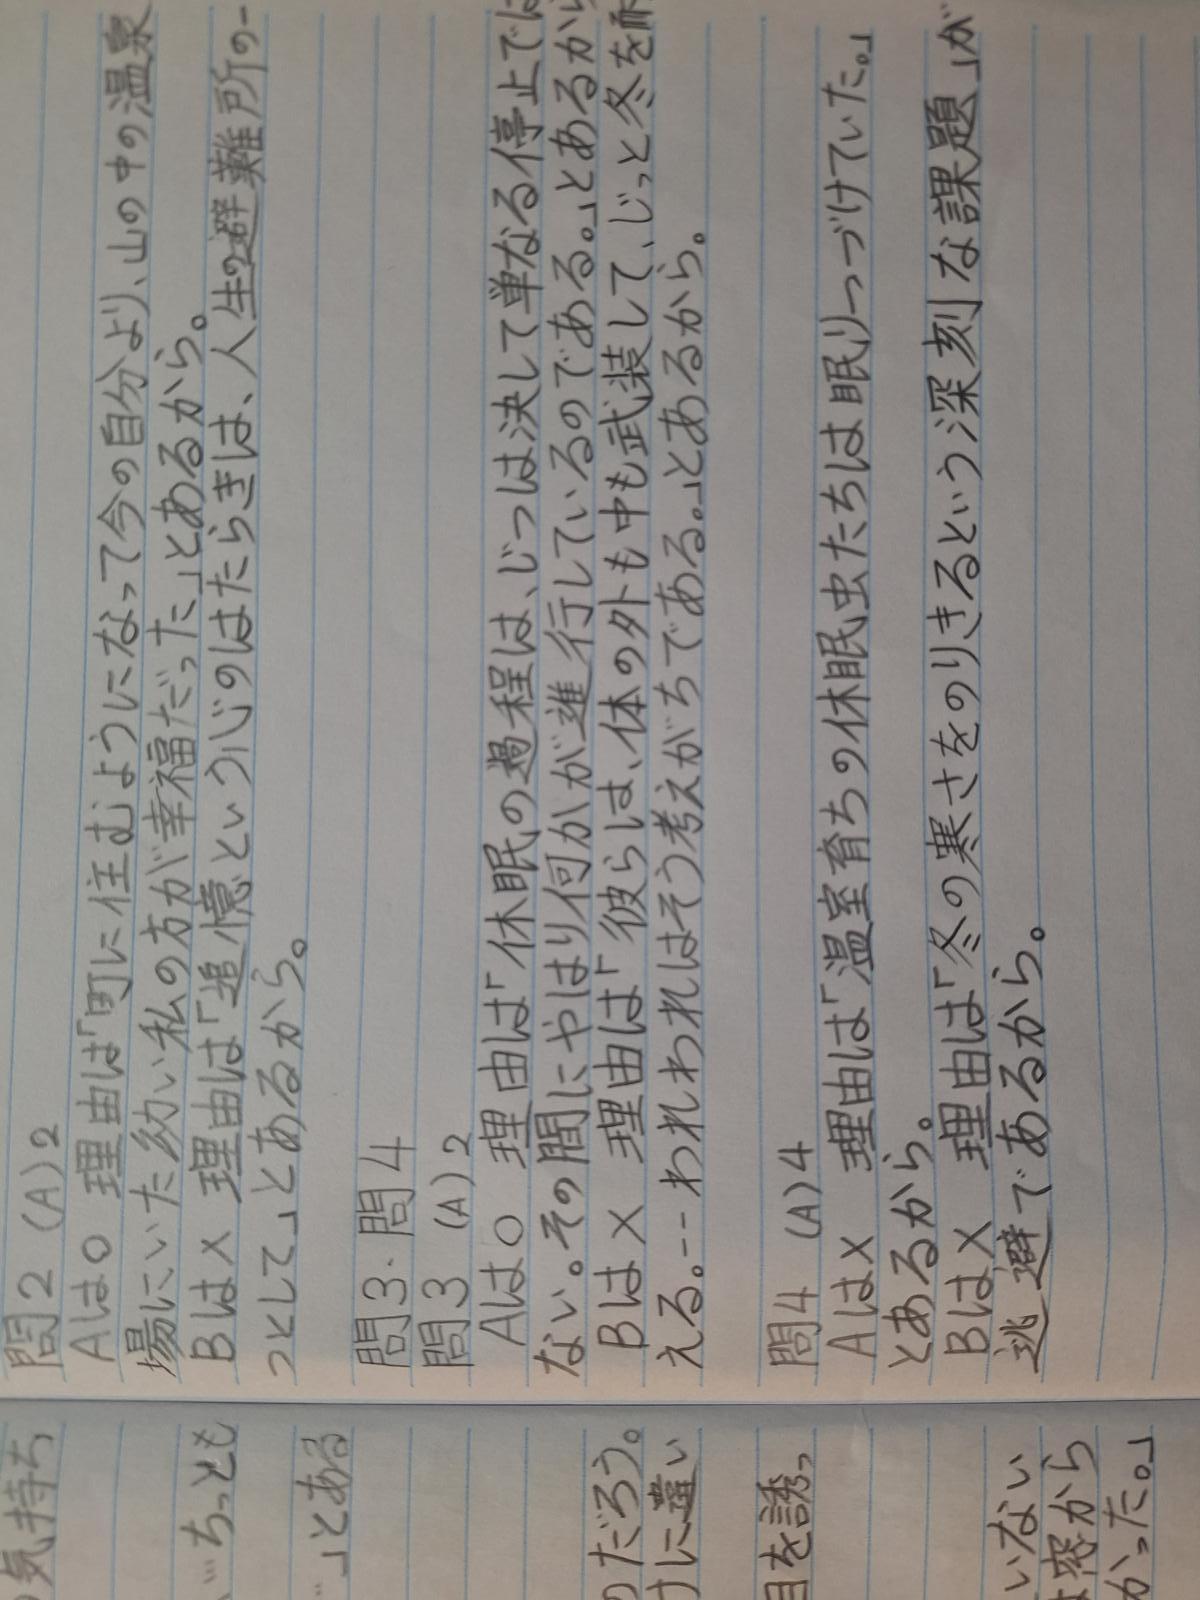 問2 (A)2
Aは○ 理由は「町に住むようになって今の自分より、山の中の温泉
場にいた幼い私の方が幸福だった」とあるから。
Bは× 理由は「追憶という心のはたらきは、人生の避難所の一
つとして」とあるから。
問3・問4
問3 (A)2
Aは○ 理由は「休眠の過程は、じつは決して単なる停止では
ない。その間にやはり何かが進行しているのである。」とあるから
Bは× 理由は「彼らは、体の外も中も武装して、じっと冬を耐
える。--われわれはそう考えがちである。」とあるから。
問4 (A)4
Aは× 理由は「温室育ちの休眠虫たちは眠りつづけていた。」
とあるから。
Bは× 理由は「冬の寒さをのりきるという深刻な課題」が
逃避であるから。
気持ち
ちっとも
」とある
のだろう。
けに違い
目を誘っ
いない
窓から
かった。」